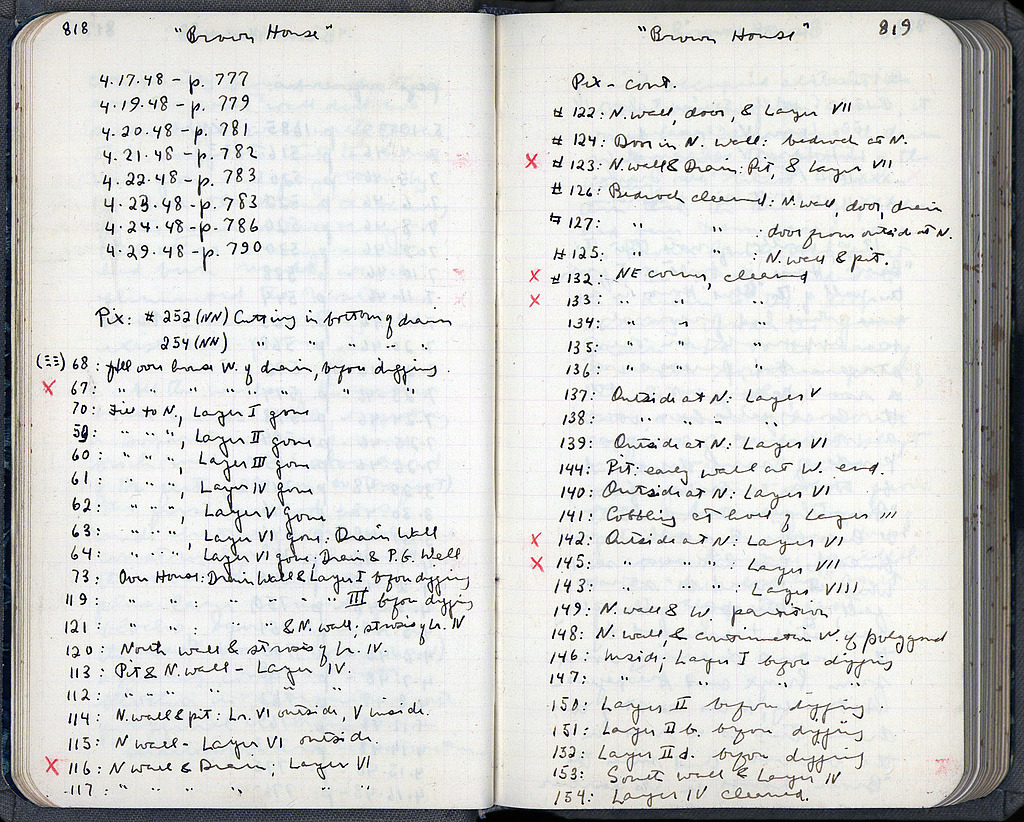 818
"Brown House"
4.17.48 - p. 777
4.19.48 - p. 779
4.20.48 - p. 781
4.21.48 - p. 782
4.22.48 - p. 783
4.23.48 - p. 783
4.24.48 - p. 786
4.29.48 - p. 790
Pix: # 252 (NN) Cutting in bottom of drain
254 (NN) " " " "
68: All over house W. of drain, before digging.
X 67: " " " " " " " "
70: Fill to N, Layer I gone
59: " " ", Layer II gone
60: " " ", Layer III gone
61: " " ", Layer IV gone
62: " " ", Layer V gone
63: " " ", Layer VI gone: Drain Wall
64: " " ", Layer VI gone; Drain & P.G. Wall
73: Over House: Drain Wall & Layer I before digging
119: " " " " " " " III before digging
121: " " " " & N. wall; strosis of Lr. IV
120: North wall & strosis of Lr. IV.
113: Pit & N. wall - Layer IV.
112: " " " " " "
114: N. wall & pit: Lr. VI outside, V inside.
115: N wall - Layer VI outside.
X 116: N wall & Drain; Layer VI
117: " " " " "
"Brown House"
819
Pix - cont.
# 122: N. wall, door, & Layer VII
# 124: Door in N. wall: bedrock at N.
X # 123: N. wall & Drain: Pit, & Layer VII
# 126: Bedrock cleaned: N. wall, door, drain
# 127: " " : door from outside at N.
# 125: " " : N. wall & pit.
X # 132: NE corner, cleaned
X 133: " " "
134: " " "
135: " "
136: " " "
137: Outside at N: Layer V
138: " " " " "
139: Outside at N: Layer VI
144: Pit: early wall at W. end.
140: Outside at N: Layer VI
141: Cobbling at level of Layer III
X 142: Outside at N: Layer VI
X 145: " " " : Layer VII
143: " " : Layer VIII
149: N. wall & W. partition
148: N. wall & continuation W. of polygonal
146: Inside: Layer I before digging
147: " " " "
150: Layer II before digging.
151: Layer II b. before digging
152: Layer II d. before digging
153: South wall & Layer IV
154: Layer IV cleaned.